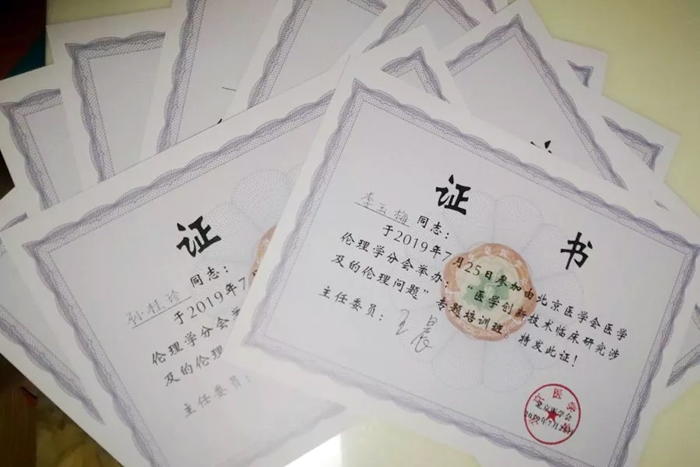 证 书
李玉梅 同志：
于2019年7月25日参加由北京医学会医学
伦理学分会举办："医学创新技术临床研究涉
及的伦理问题"专题培训班。特发此证！
主任委员：
北京医学会
证
孙桂珍 同志：
于2019年7
伦理学分会举
及的伦理
主任委员：